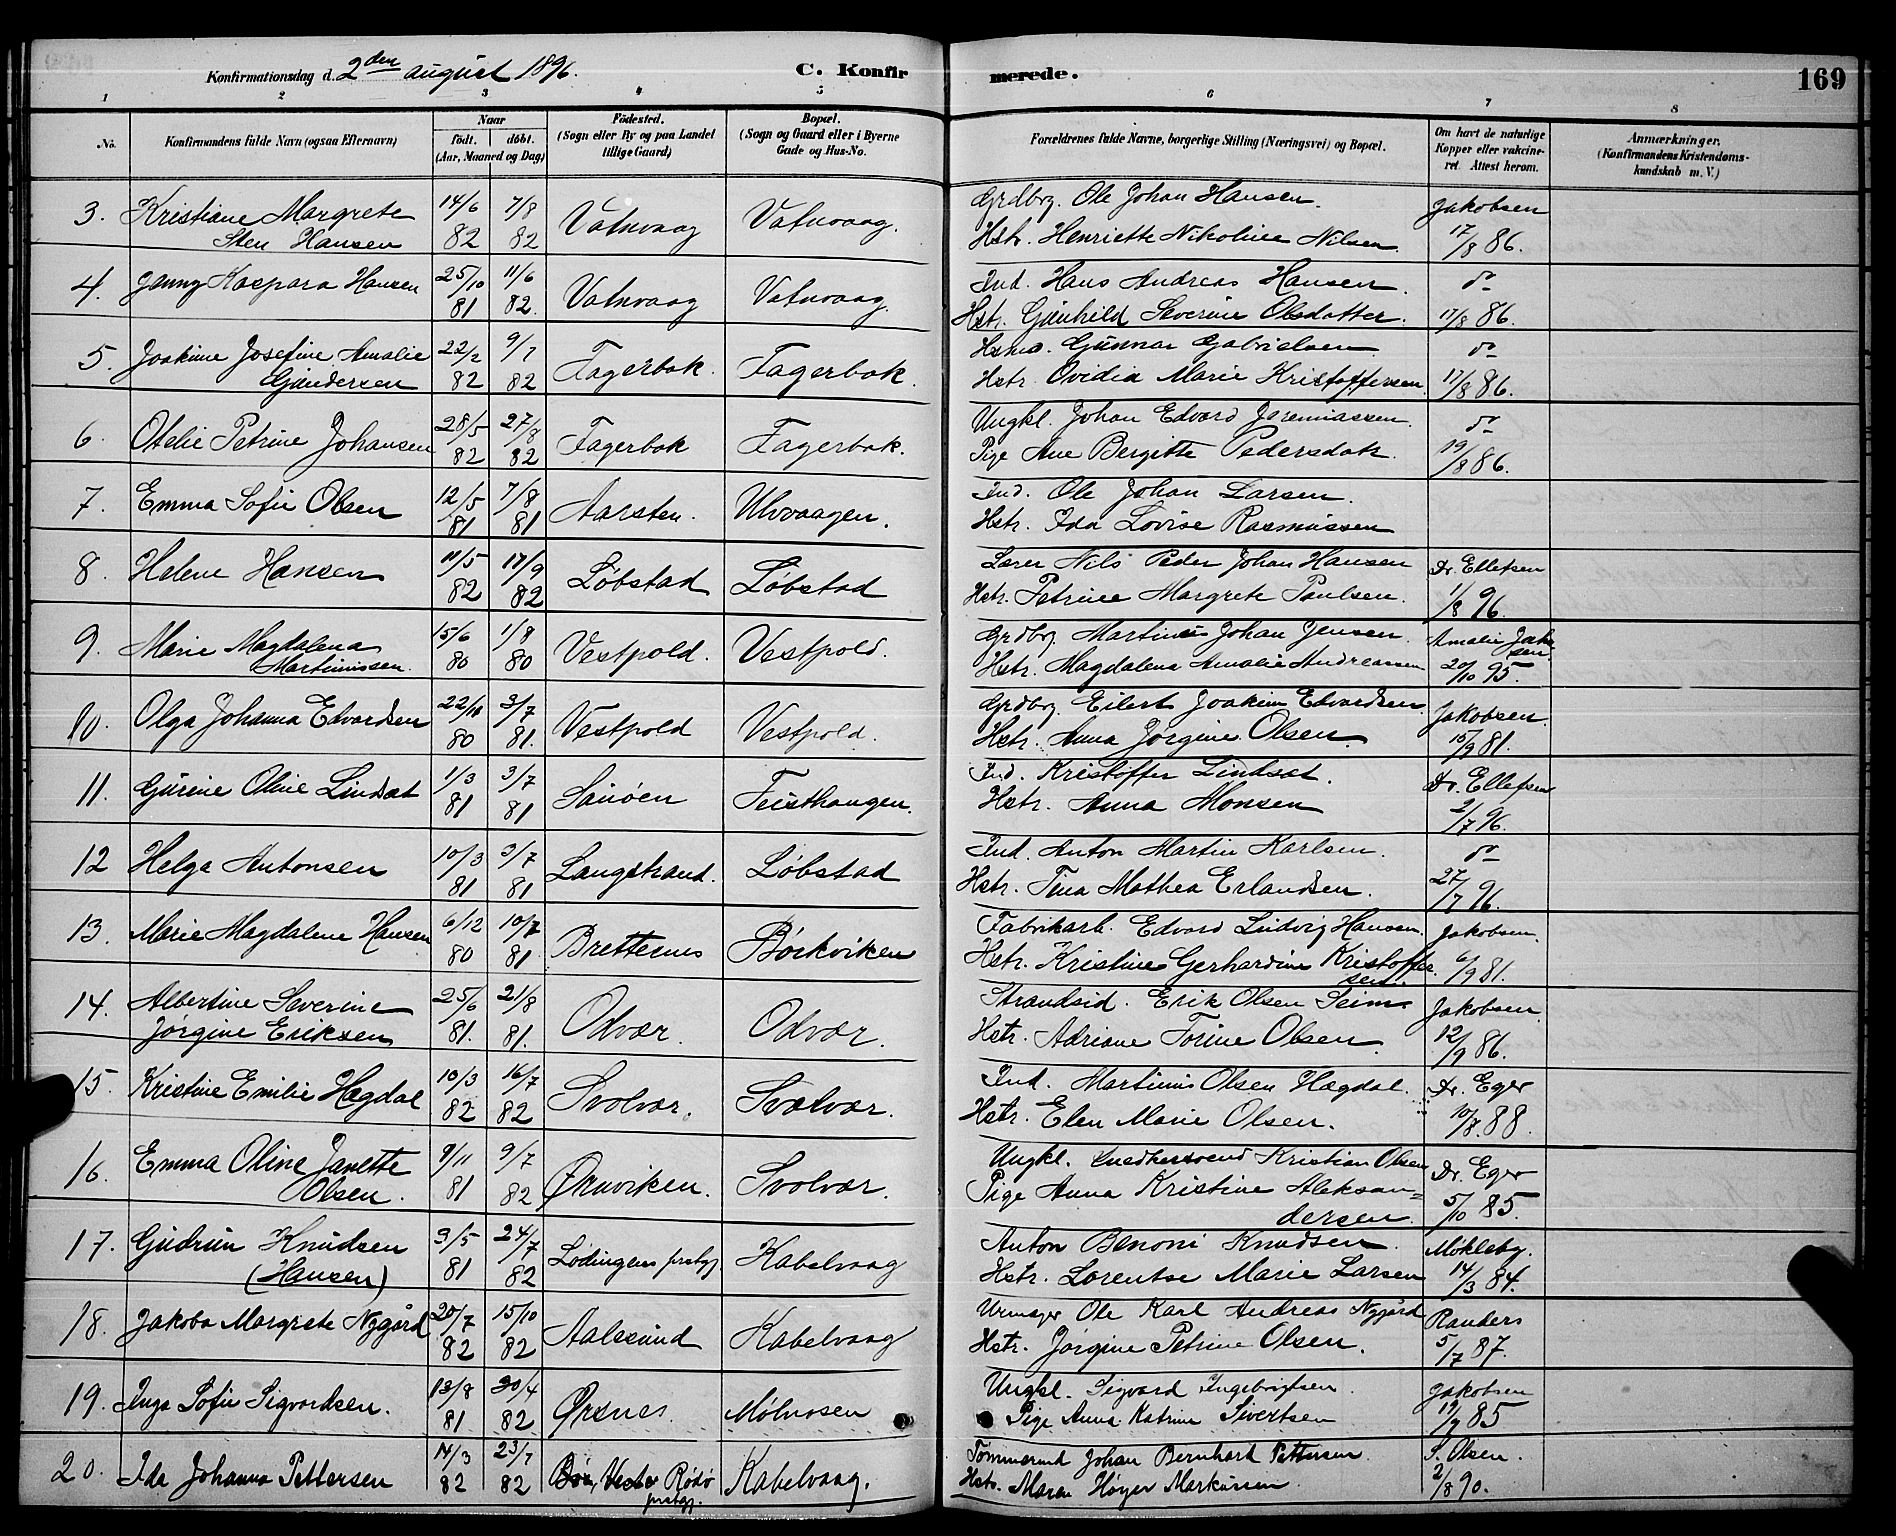 Konfirmationsdag d. 2den august 1896. C. Konfirmerede. 169
1 2 3 4 5 6 7 8
No.
Konfirmandens fulde Navn (ogsaa Efternavn)
Naar
født. døbt.
(Aar, Maaned og Dag)
Fødested.
(Sogn eller By og paa Landet
tillige Gaard)
Bopæl.
(Sogn og Gaard eller i Byerne
Gade og Hus-No.
Forældrenes fulde Navne, borgerlige Stilling (Næringsvei) og Bopæl.
Om havt de naturlige
Kopper eller vakcine-
ret. Attest herom.
Anmærkninger.
(Konfirmandens Kristendoms-
kundskab m. V.)
3. Kristiane Margrete 14/6 7/8 Vatnvaag Vatnvaag. Grdbrg. Ole Johan Hansen. Jakobsen
Sten Hansen 82 82 Hstr. Henriette Nikoline Nilsen. 17/8 86.
4. Jenny Kaspara Hansen 25/10 11/6 Vatnvaag Vatnvaag. Ind. Hans Andreas Hansen. do
81 82. Hstr. Gunhild Severine Olsdatter. 17/8 86.
5. Joakime Josefine Amalie 22/2 9/7 Fagerbok. Fagerbok. Hsmd. Gunnar Gabrielsen do
Gundersen 82 82 Hstr. Ovidia Marie Kristoffersen 17/8 86.
6. Otelie Petrine Johansen 28/5 27/8 Fagerbok Fagerbok. Ungkl. Johan Edvard Jeremiassen. do
82 82 Pige Ane Bergitte Pedersdatr. 19/8 86.
7. Emma Sofie Olsen 12/5 7/8 Aarsten. Ulvvaagen. Ind. Ole Johan Larsen.
81 81 Hstr. Ida Lovise Rasmussen
8. Helene Hansen 11/5 17/9 Løbstad Løbstad Lærer Nils Peder Johan Hansen Dr. Ellefsen
82 82 Hstr. Petrine Margrete Paulsen. 1/8 96.
9. Marie Magdalena 15/6 1/8 Vestpold. Vestpold. Grdbrg. Martinus Johan Jensen. Amalie Jakobsen.
Martinussen. 80 80 Hstr. Magdalena Amalie Andreassen 20/10 95.
10. Olga Johanna Edvardsen 22/10 3/7 Vestpold Vestpold. Grdbrg. Eilert Joakim Edvardsen. Jakobsen.
80 81. Hstr. Anna Jørgine Olsen. 15/9 81.
11. Gurine Oline Lindsæt 1/3 3/7 Sauøen Feisthaugen. Ind. Kristoffer Lindsæt. Dr. Ellefsen
81 81 Hstr. Anna Monsen 2/7 96.
12 Helga Antonsen 10/3 3/7 Langstrand. Løbstad Ind. Anton Martin Karlsen. do
81 81 Hstr. Tina Mathea Erlandsen. 27/7 96.
13. Marie Magdalene Hansen 6/12 10/7 Bretternes Børkviken Fabrikarb. Edvard Ludvig Hansen. Jakobsen.
80 81 Hstr. Kristine Gerhardine Kristoffersen. 6/9 81.
14. Albertine Severine 25/6 21/8 Odvær. Odvær. Strandsid. Erik Olsen Seim Jakobsen
Jørgine Eriksen 81. 81. Hstr. Adriane Torine Olsen. 12/9 86.
15. Kristine Emilie Hægdal 10/3 16/7 Svolvær. Svolvær. Ind. Martinus Olsen Hægdal. Dr. Eger
82 82 Hstr. Elen Marie Olsen. 10/8. 88.
16. Emma Oline Janette 9/11 9/7 Ørnviken. Svolvær. Ungkl. Snedkersvend Kristian Olsen Dr. Eger
Olsen. 81 82 Pige Anna Kristine Aleksan=
dersen. 5/10 85.
17. Gudrun Knudsen 3/5 24/7 Lødingens prstgj. Kabelvaag Anton Benoni Knudsen. Møkleby.
(Hansen) 81 82 Hstr. Lorentse Marie Larsen 14/3 84.
18. Jakoba Margrete Nygård 20/7 15/10 Aalesund Kabelvaag Urmager Ole Karl Andreas Nygård Randers
82 82 Hstr. Jørgine Petrine Olsen. 5/7 87.
19. Inga Sofie Sigvardsen. 13/8 30/4 Ørsnes. Mølnosen Ungkl. Sigvard Ingebrigtsen. Jakobsen
81 82 Pige Anna Katrine Sivertsen 19/9 85
20. Ida Johanna Pettersen 14/3 23/7 Vester Rødø Kabelvaag. Tømmermd Johan Bernhard Pettersen S. Olsen.
82 82 prstgj. Hstr. Maren Høyer Markussen. 2/8 90.